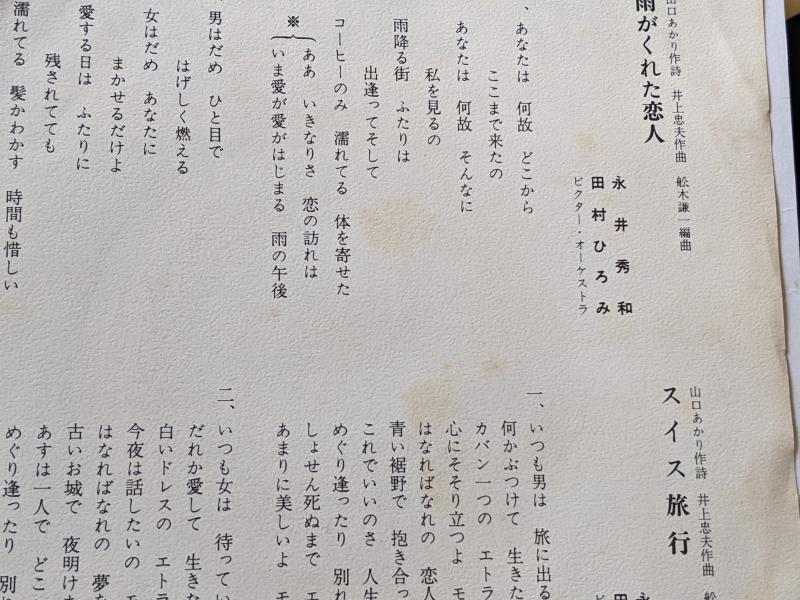 雨がくれた恋人
山口あかり作詩　井上忠夫作曲　舩木謙一編曲
永井秀和
田村ひろみ
ビクター・オーケストラ
、あなたは　何故　どこから
ここまで来たの
あなたは　何故　そんなに
私を見るの
雨降る街　ふたりは
出逢ってそして
コーヒーのみ　濡れてる　体を寄せた
※
ああ　いきなりさ　恋の訪れは
いま愛が愛がはじまる　雨の午後
、男はだめ　ひと目で
はげしく燃える
女はだめ　あなたに
まかせるだけよ
愛する日は　ふたりに
残されてても
濡れてる　髪かわかす　時間も惜しい
スイス旅行
山口あかり作詩　井上忠夫作曲　舩
永
田
ビ
一、いつも男は　旅に出る
何かぶつけて　生きた
カバン一つの　エトラ
心にそそり立つよ　モ
はなればなれの　恋人
青い裾野で　抱き合っ
これでいいのさ　人生
めぐり逢ったり　別れ
しょせん死ぬまで　エ
あまりに美しいよ　モ
二、いつも女は　待ってい
だれか愛して　生きた
白いドレスの　エトラ
今夜は話したいの　モ
はなればなれの　夢を
古いお城で　夜明けま
あすは一人で　どこ
めぐり逢ったり　別れ